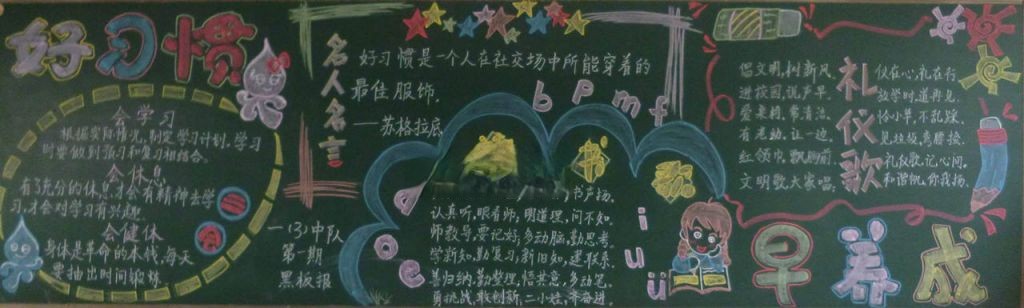 好习惯
会学习
根据实际情况,制定学习计划,学习
时要做到预习和复习相结合。
会休息
有了充分的休息,才会有精神去学
习,才会对学习有兴趣。
会健体
身体是革命的本钱,每天
要抽出时间锻炼。
名人名言
好习惯是一个人在社交场中所能穿着的
最佳服饰。
——苏格拉底
一(3)中队
第一期
黑板报
b p m f
a
o
e
i
u
ü
书
歌
书声扬,
认真听,眼看师,明道理,问不知,
师教导,要记好,多动脑,勤思考,
学新知,勤复习,新旧知,建联系,
善归纳,勤整理,悟其意,多动笔,
勇挑战,敢创新,二小娃,齐奋进。
礼仪歌
倡文明,树新风,
进校园,说声早,
爱桌椅,常清洁,
有老幼,让一边,
红领巾,飘胸前,
文明歌,大家唱;
仪在心,礼在行
放学时,道再见
见垃圾,弯腰捡
礼仪歌,记心间,
和谐帆,你我扬。
早养成